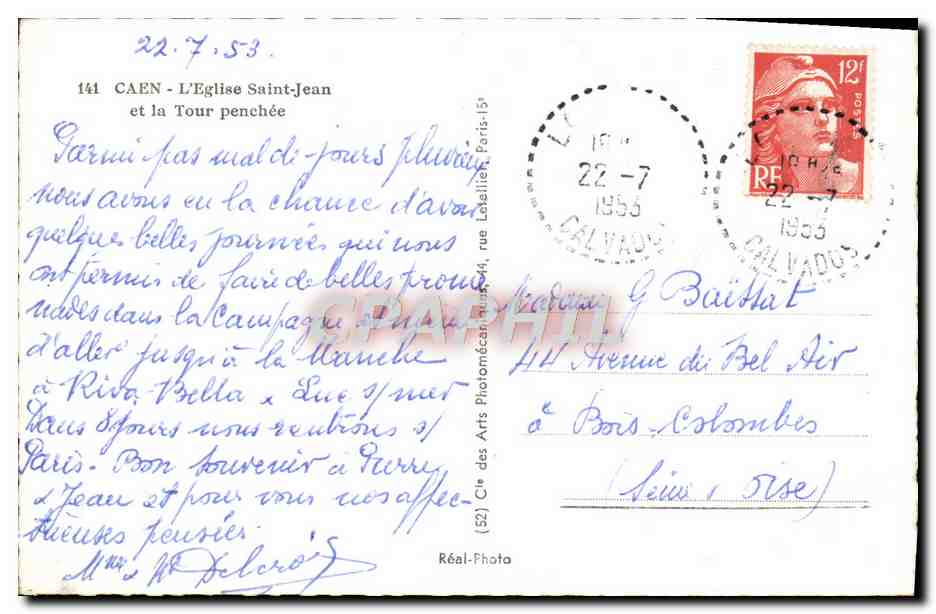 22.7.53.
141 CAEN - L'Eglise Saint-Jean
et la Tour penchée
Parmi pas mal de jours pluvieux
nous avons eu la chance d'avoir
quelques belles journées qui nous
ont permis de faire de belles prome
nades dans la campagne et même
d'aller jusqu'à la Manche
à Riva-Bella & Luc s/mer
Dans 8 jours nous rentrons s/
Paris. Bon souvenir à Pierre
& Jean et pour vous nos affec-
tueuses pensées.
(52) Cie des Arts Photomécaniques, 44, rue Letellier, Paris-15e
Réal-Photo
12f
POSTES
RF
22 -7
1953
CALVADOS
22 -7
1953
CALVADOS
Madame G Baissat
44 Avenue du Bel Air
à Bois-Colombes
(Seine & Oise)
CPAPHIL